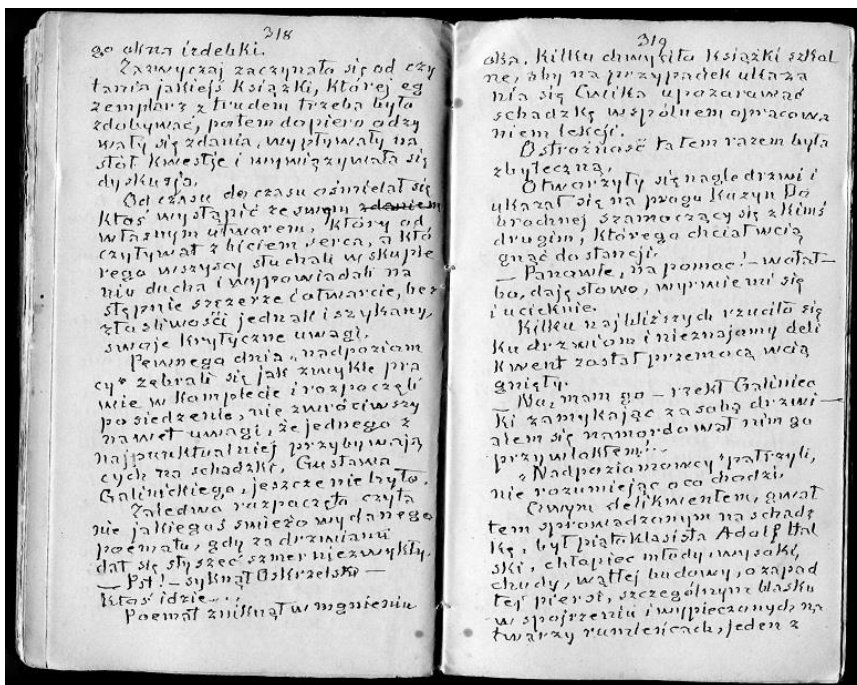 318
go okna izdebki.
Zazwyczaj zaczynało się od czy
tania jakiejś książki, której eg
zemplarz z trudem trzeba było
zdobywać, potem dopiero odzy
wały się zdania, wypływały na
stół kwestje i wywiązywała się
dyskusja.
Od czasu do czasu ośmielał się
ktoś wystąpić ze swym zdaniem
własnym utworem, który od
czytywał z biciem serca, a któ
rego wszyscy słuchali w skupie
niu ducha i wypowiadali na
stępnie szczerze i otwarcie, bez
złośliwości jednak i szykany,
swoje krytyczne uwagi.
Pewnego dnia „nadpoziom
cy" zebrali się jak zwykle pra
wie w komplecie i rozpoczęli
posiedzenie, nie zwróciwszy
nawet uwagi, że jednego z
najpunktualniej przybywają
cych na schadzki, Gustawa
Galinickiego, jeszcze nie było.
Zaledwo rozpoczęto czyta
nie jakiegoś świeżo wydanego
poematu, gdy za drzwiami
dał się słyszeć szmer niezwykły.
— Pst! – syknął Oskrzelski —
Ktoś idzie....
Poemat zniknął w mgnieniu
319
oka. Kilku chwyciło książki szkol
ne, aby na przypadek ukaza
nia się Ćwika upozorować
schadzkę wspólnem opracowa
niem lekcji.
Ostrożność ta tem razem była
zbyteczną.
Otworzyły się nagle drzwi i
ukazał się na progu Kuzyn Do
brochnej szamoczący się z kimś
drugim, którego chciał wcią
gnąć do stancji.
— Panowie, na pomoc! – wołał —
bo, daję słowo, wyrwie mi się
i ucieknie.
Kilku najbliższych rzuciło się
ku drzwiom i nieznajomy deli
kwent został przemocą wcią
gnięty.
— No, mam go – rzekł Galinic
ki zamykając za sobą drzwi —
alem się namordował nim go
przywlokłem...
„Nadpoziomowcy" patrzyli,
nie rozumiejąc o co chodzi.
Owym delikwentem, gwał
tem sprowadzonym na schadz
kę, był piątoklasista Adolf Hal
ski, chłopiec młody, wysoki,
chudy, wątłej budowy, o zapad
łej piersi, szczególnym blasku
w spojrzeniu i wypieczonych na
twarzy rumieńcach, jeden z